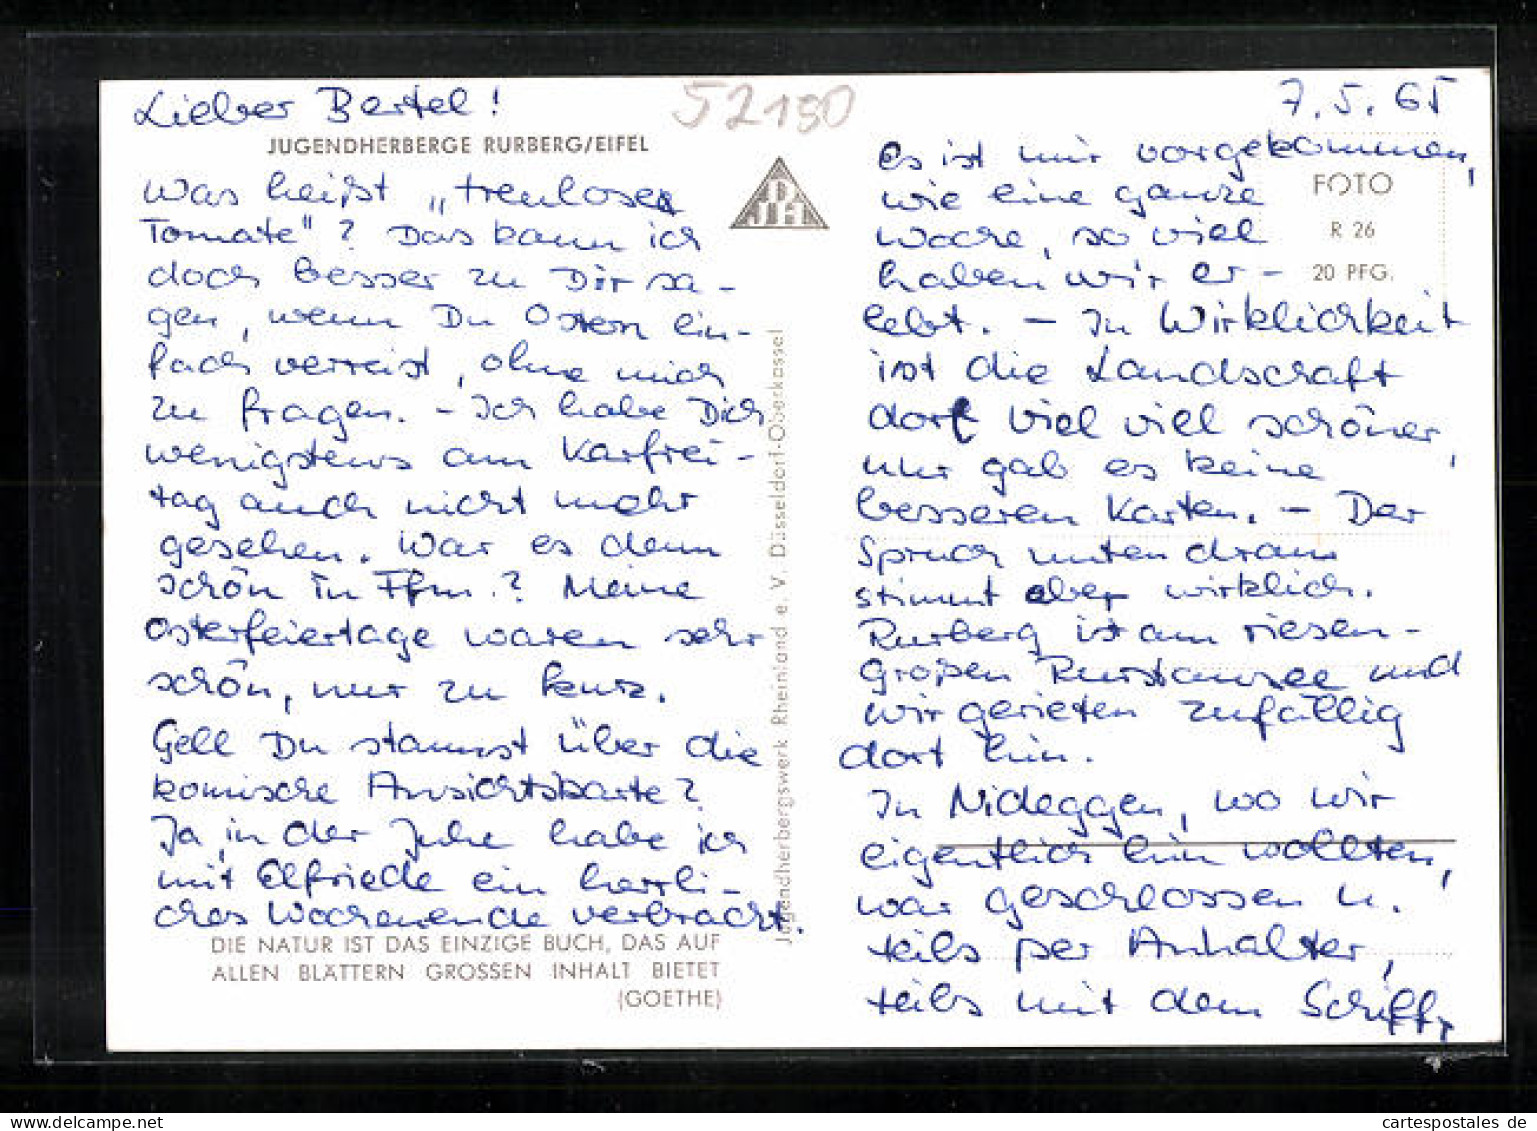 Lieber Bertel!
52150
7.5.65
JUGENDHERBERGE RURBERG/EIFEL
DJH
Was heißt „treuloser
Tomate"? Das kann ich
doch besser zu Dir sa-
gen, wenn Du Ostern ein-
fach verreist, ohne mich
zu fragen. - Ich habe Dich
wenigstens am Karfrei-
tag auch nicht mehr
gesehen. War es denn
schön in Ffm.? Meine
Osterfeiertage waren sehr
schön, nur zu kurz.
Gell Du staunst über die
komische Ansichtskarte?
Ja, in der Juhe habe ich
mit Elfriede ein herrli-
ches Wochenende verbracht.
DIE NATUR IST DAS EINZIGE BUCH, DAS AUF
ALLEN BLÄTTERN GROSSEN INHALT BIETET
(GOETHE)
Jugendherbergswerk Rheinland e. V. Düsseldorf-Oberkassel
FOTO
R 26
20 PFG.
es ist mir vorgekommen,
wie eine ganze
Woche, so viel
haben wir er-
lebt. - In Wirklichkeit
ist die Landschaft
dort viel viel schöner,
nur gab es keine
besseren Karten. - Der
Spruch unten dran
stimmt aber wirklich.
Rurberg ist am riesen-
großen Rurstausee und
wir gerieten zufällig
dort hin.
In Nideggen, wo wir
eigentlich hin wollten,
war geschlossen u.
teils per Anhalter,
teils mit dem Schiff,
cartespostales de